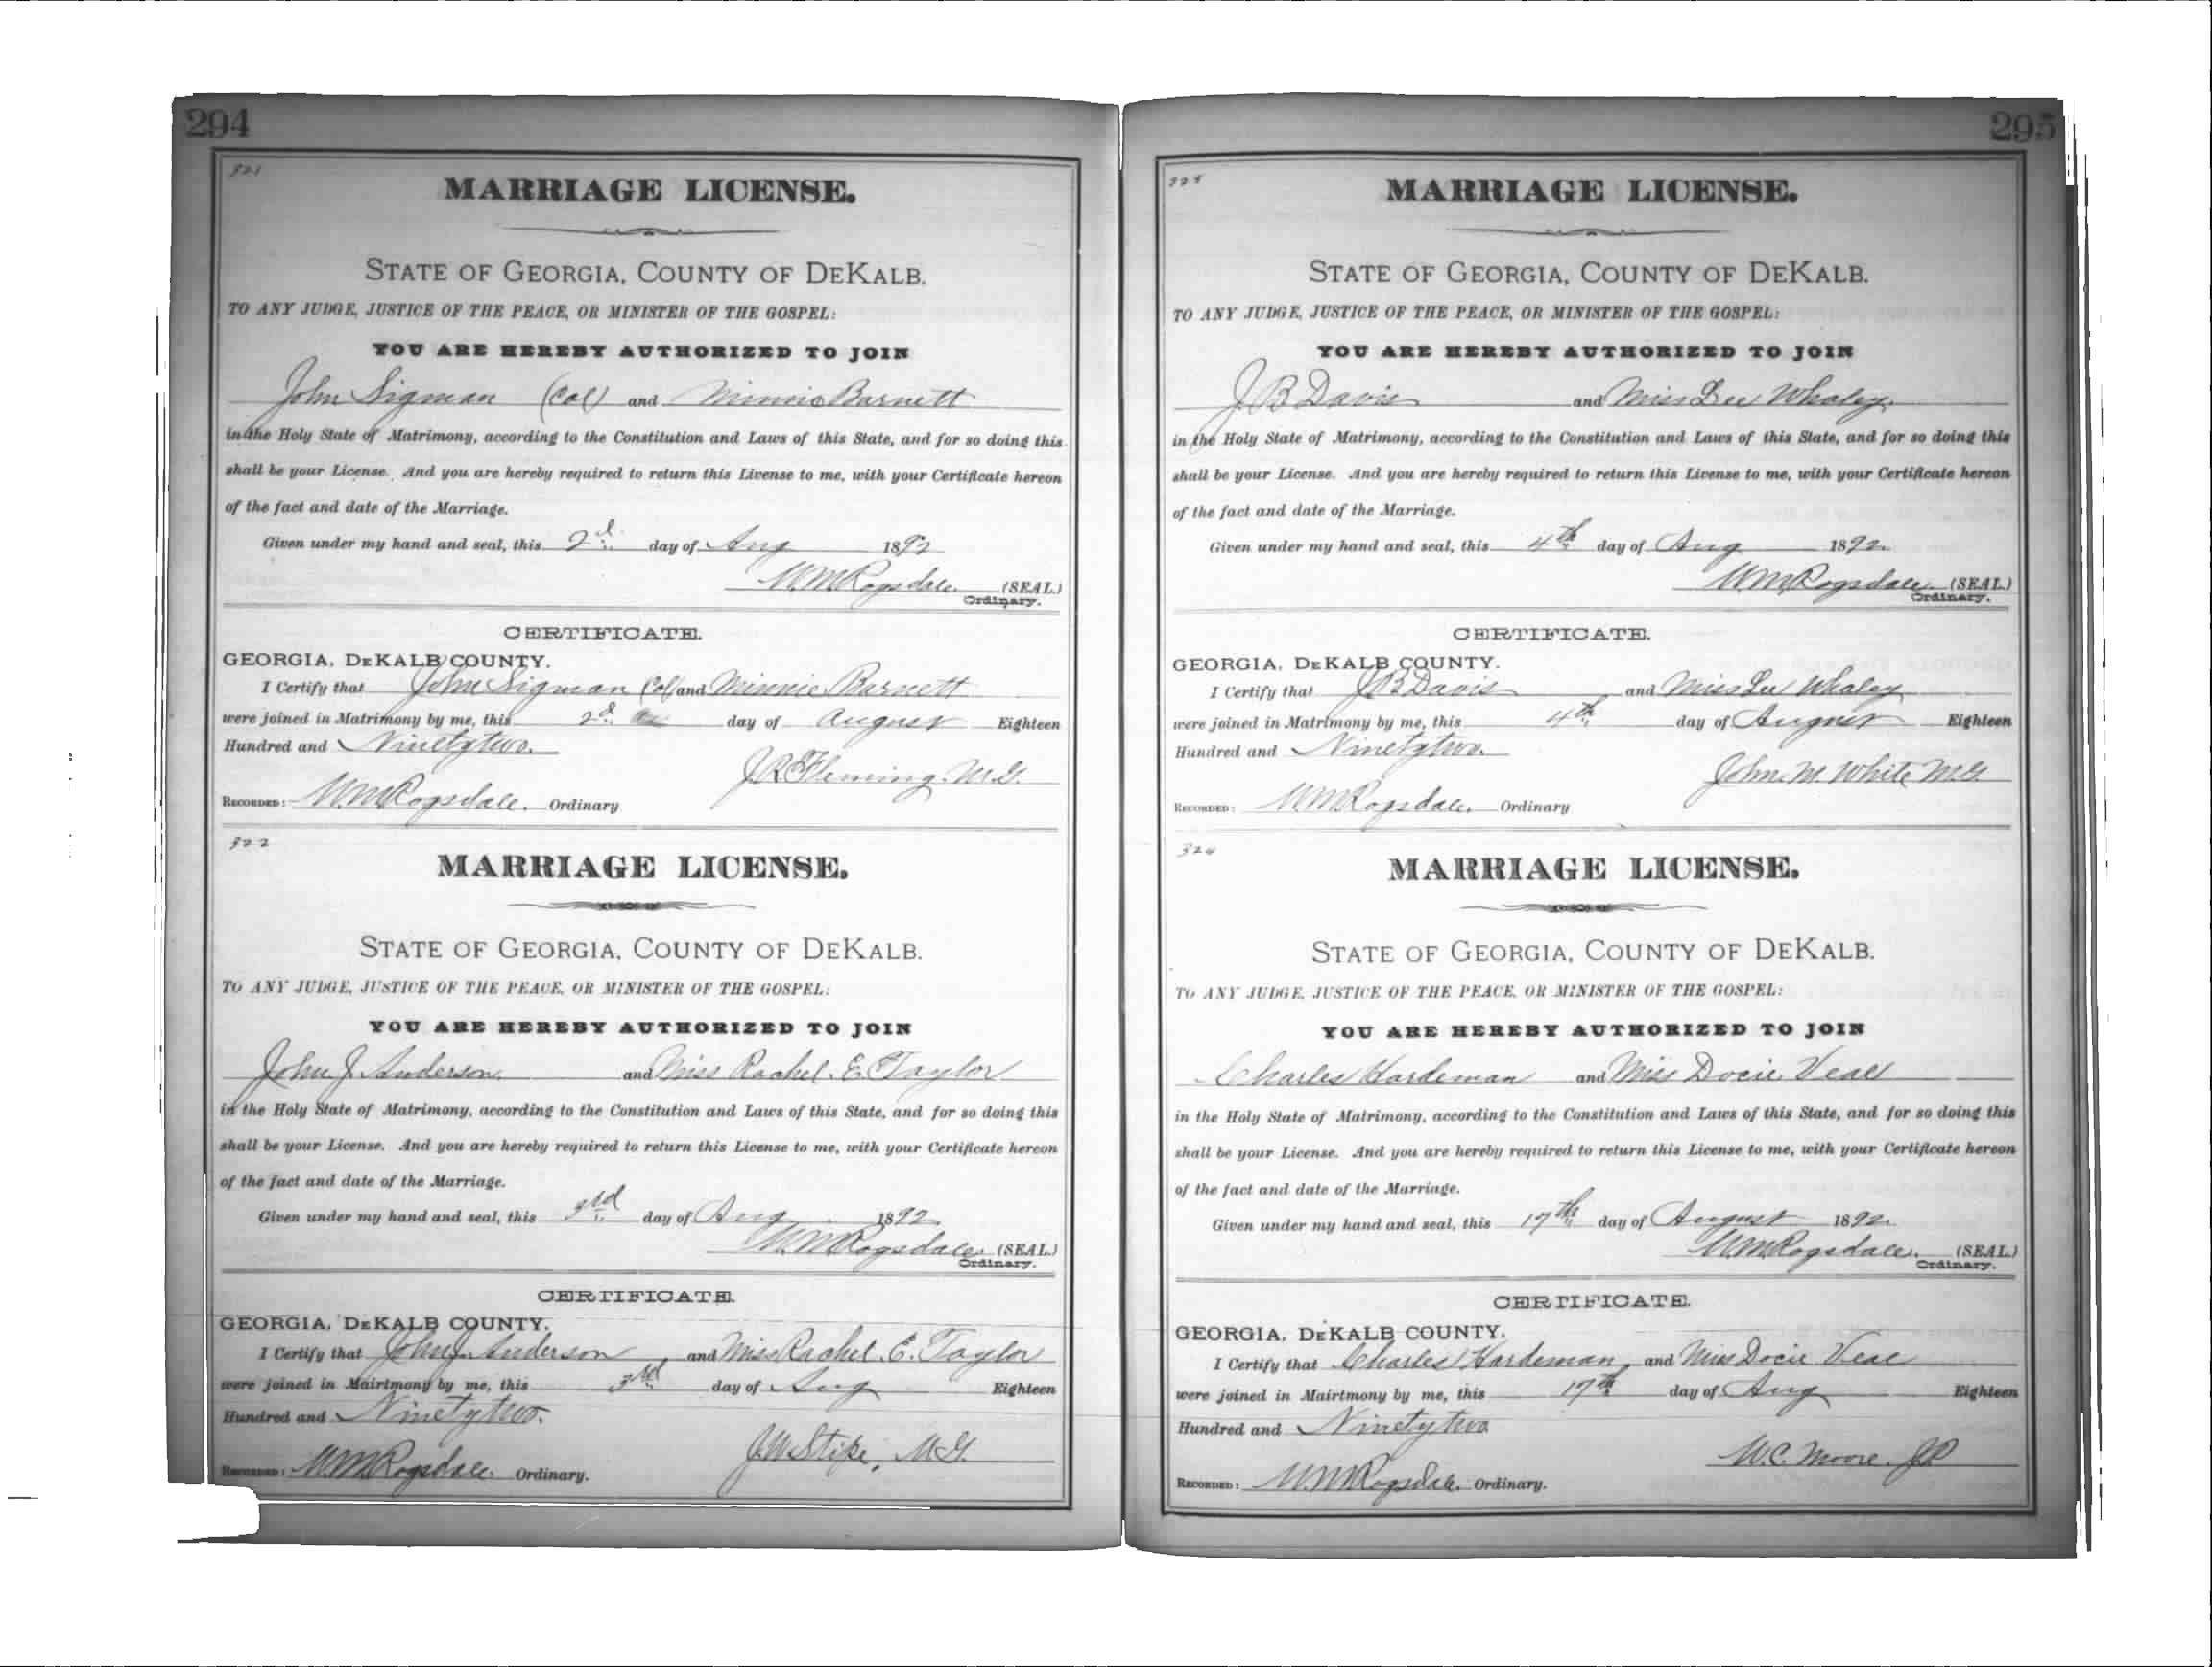 294
321
MARRIAGE LICENSE.
STATE OF GEORGIA, COUNTY OF DEKALB.
TO ANY JUDGE, JUSTICE OF THE PEACE, OR MINISTER OF THE GOSPEL:
YOU ARE HEREBY AUTHORIZED TO JOIN
John Sigman (Col) and Minnie Barnett
in the Holy State of Matrimony, according to the Constitution and Laws of this State, and for so doing this
shall be your License. And you are hereby required to return this License to me, with your Certificate hereon
of the fact and date of the Marriage.
Given under my hand and seal, this 2d day of Aug 1892
W.M. Ragsdale. (SEAL.)
Ordinary.
CERTIFICATE.
GEORGIA, DEKALB COUNTY.
I Certify that John Sigman (Col) and Minnie Barnett
were joined in Matrimony by me, this 2d day of August Eighteen
Hundred and Ninety two.
J.R. Fleming. M.G.
RECORDED: W.M. Ragsdale. Ordinary
322
MARRIAGE LICENSE.
STATE OF GEORGIA, COUNTY OF DEKALB.
TO ANY JUDGE, JUSTICE OF THE PEACE, OR MINISTER OF THE GOSPEL:
YOU ARE HEREBY AUTHORIZED TO JOIN
John J. Anderson. and Miss Rachel. E. Taylor
in the Holy State of Matrimony, according to the Constitution and Laws of this State, and for so doing this
shall be your License. And you are hereby required to return this License to me, with your Certificate hereon
of the fact and date of the Marriage.
Given under my hand and seal, this 3rd day of Aug 1892
W.M. Ragsdale. (SEAL.)
Ordinary.
CERTIFICATE.
GEORGIA, DEKALB COUNTY.
I Certify that John J. Anderson and Miss Rachel. E. Taylor
were joined in Mairtmony by me, this 3rd day of Aug Eighteen
Hundred and Ninety two.
J.W. Stipe, M.G.
RECORDED: W.M. Ragsdale. Ordinary.
295
MARRIAGE LICENSE.
STATE OF GEORGIA, COUNTY OF DEKALB.
TO ANY JUDGE, JUSTICE OF THE PEACE, OR MINISTER OF THE GOSPEL:
YOU ARE HEREBY AUTHORIZED TO JOIN
J B Davis and Miss Lee Whaley.
in the Holy State of Matrimony, according to the Constitution and Laws of this State, and for so doing this
shall be your License. And you are hereby required to return this License to me, with your Certificate hereon
of the fact and date of the Marriage.
Given under my hand and seal, this 4th day of Aug 1892.
W.M. Ragsdale. (SEAL.)
Ordinary.
CERTIFICATE.
GEORGIA, DEKALB COUNTY.
I Certify that J B Davis and Miss Lee Whaley
were joined in Matrimony by me, this 4th day of August Eighteen
Hundred and Ninety two.
John. M. White M.G
RECORDED: W.M. Ragsdale. Ordinary
324
MARRIAGE LICENSE.
STATE OF GEORGIA, COUNTY OF DEKALB.
TO ANY JUDGE, JUSTICE OF THE PEACE, OR MINISTER OF THE GOSPEL:
YOU ARE HEREBY AUTHORIZED TO JOIN
Charles Hardeman and Miss Docie Veal
in the Holy State of Matrimony, according to the Constitution and Laws of this State, and for so doing this
shall be your License. And you are hereby required to return this License to me, with your Certificate hereon
of the fact and date of the Marriage.
Given under my hand and seal, this 17th day of August 1892.
W.M. Ragsdale. (SEAL.)
Ordinary.
CERTIFICATE.
GEORGIA, DEKALB COUNTY.
I Certify that Charles Hardeman, and Miss Docie Veal
were joined in Mairtmony by me, this 17th day of Aug Eighteen
Hundred and Ninety two
W.C. Moore. JP
RECORDED: W.M. Ragsdale. Ordinary.